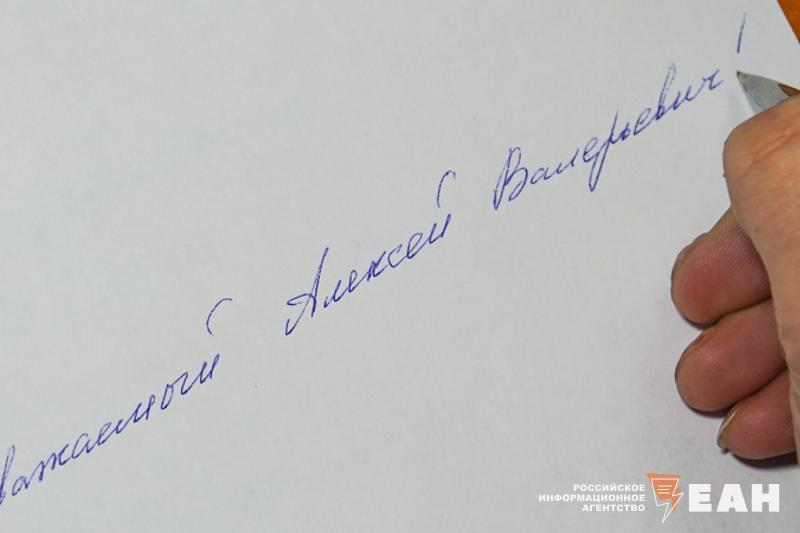 важаемый Алексей Валерьевич!
РОССИЙСКОЕ
ИНФОРМАЦИОННОЕ
АГЕНТСТВО
ЕАН